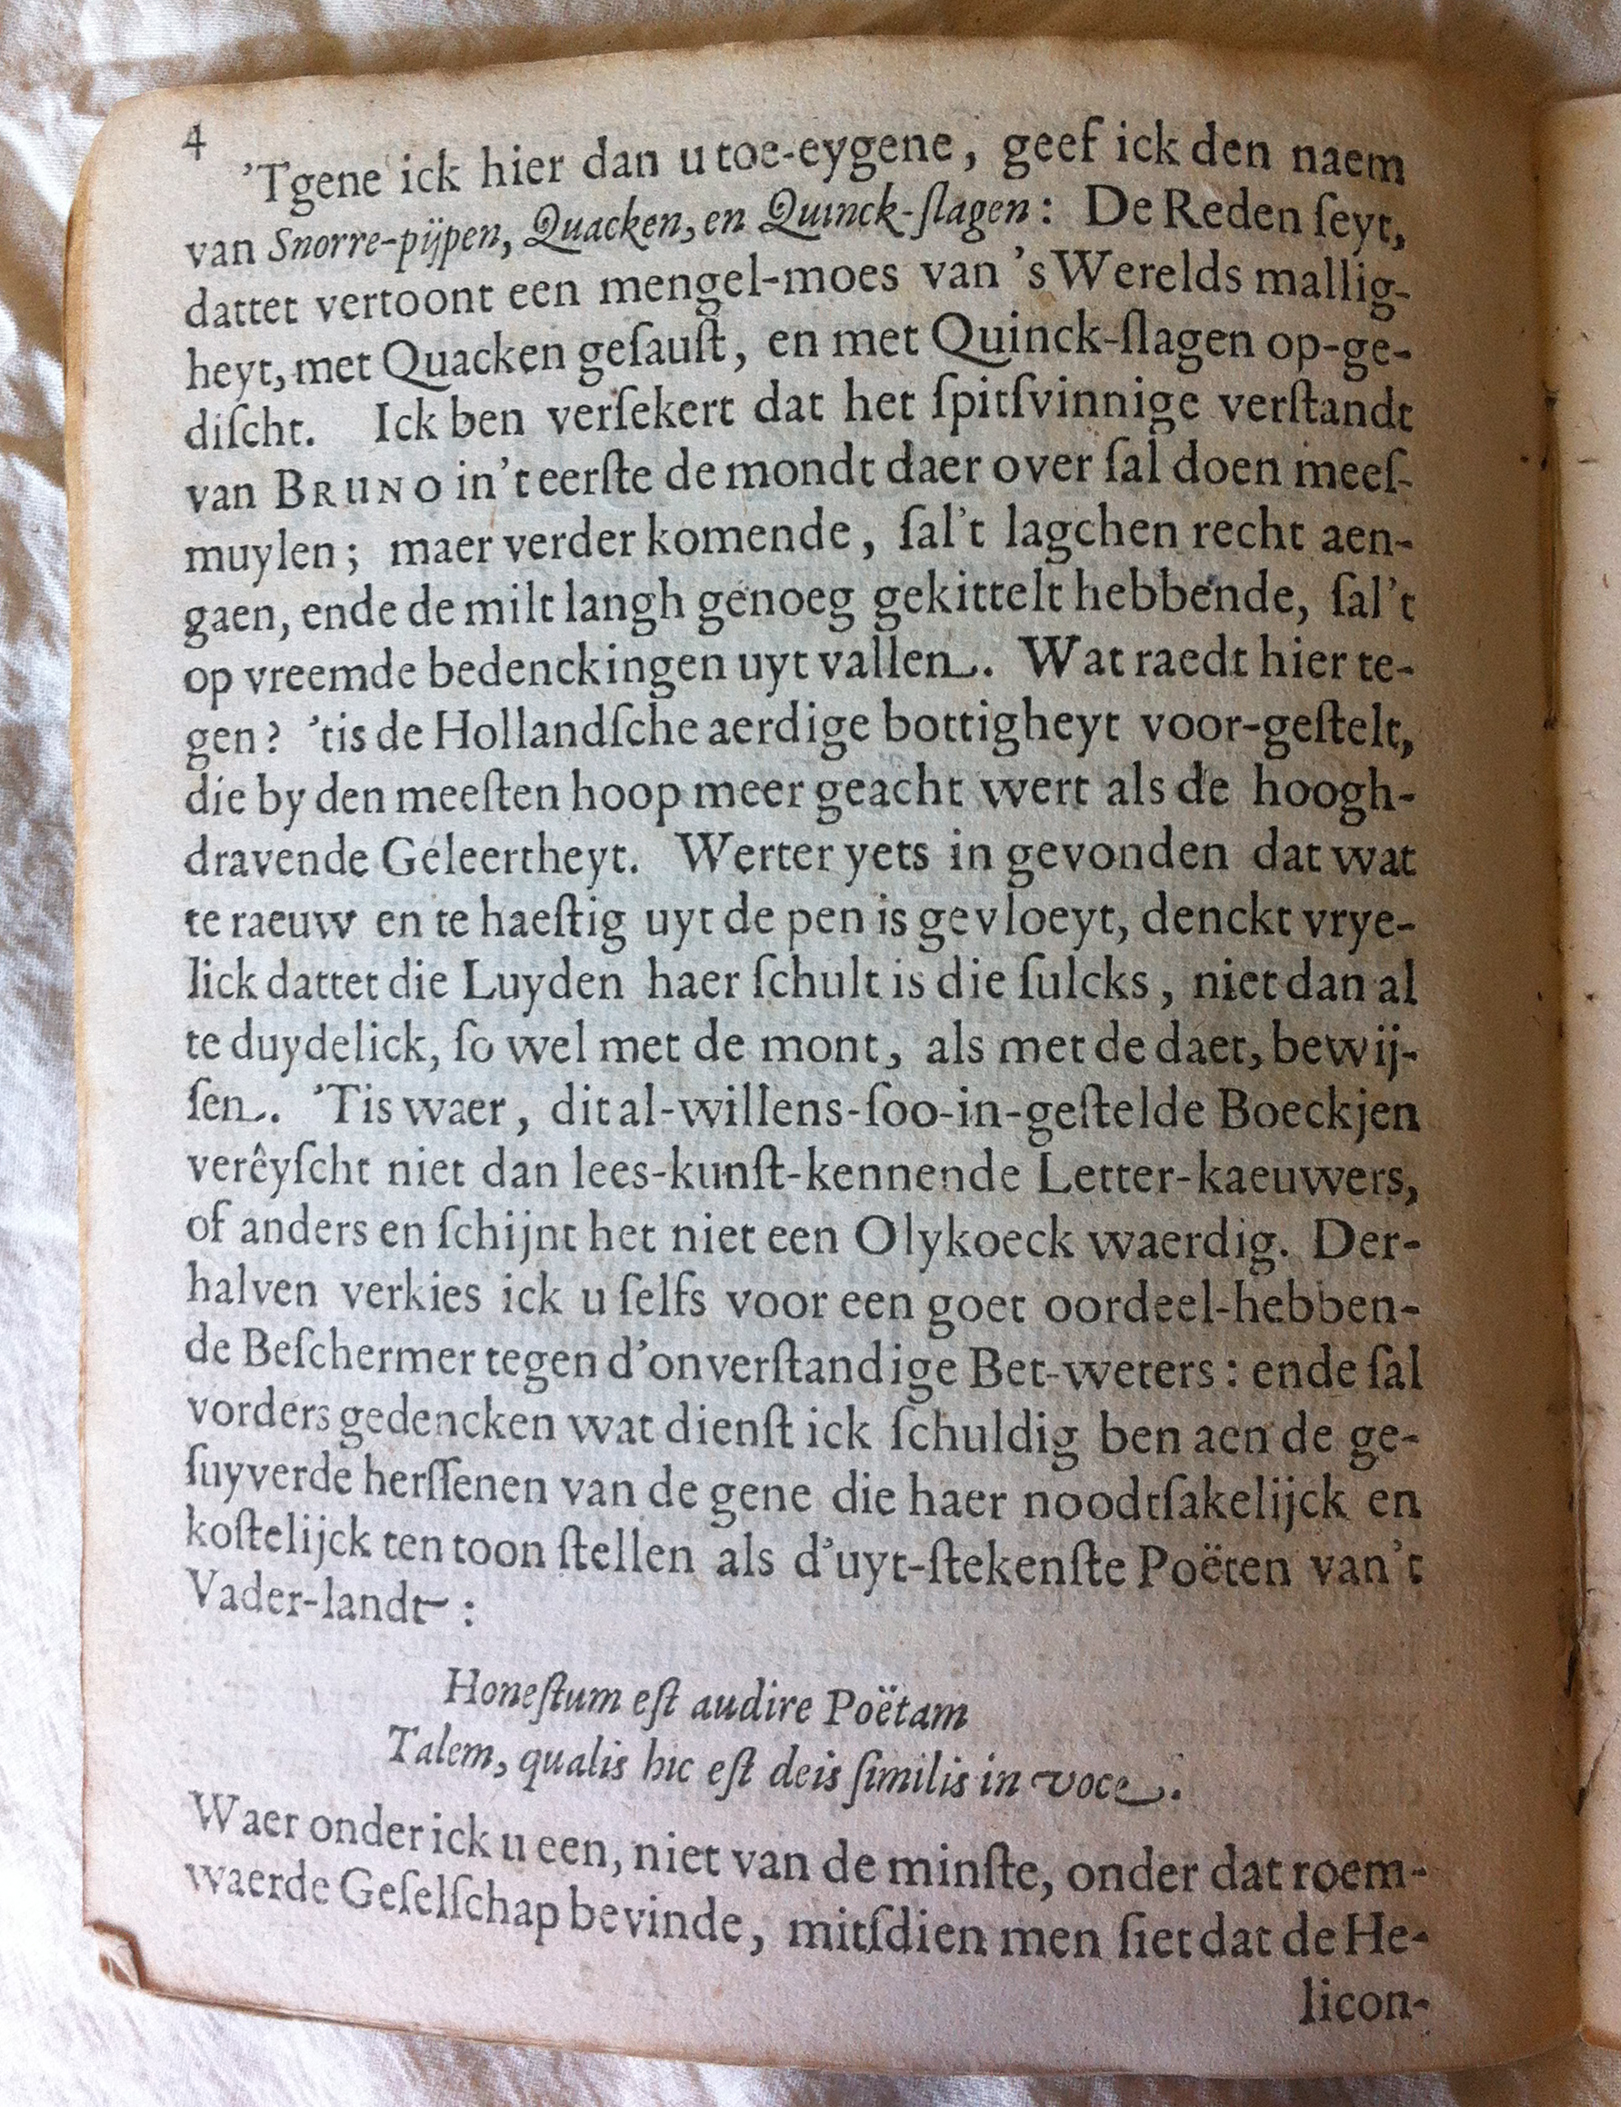 4
'Tgene ick hier dan u toe-eygene, geef ick den naem
van Snorre-pijpen, Quacken, en Quinck-ſlagen: De Reden ſeyt,
dattet vertoont een mengel-moes van 's Werelds mallig-
heyt, met Quacken geſauſt, en met Quinck-ſlagen op-ge-
diſcht. Ick ben verſekert dat het ſpitſvinnige verſtandt
van BRUNO in't eerſte de mondt daer over ſal doen meeſ-
muylen; maer verder komende, ſal't lagchen recht aen-
gaen, ende de milt langh genoeg gekittelt hebbende, ſal't
op vreemde bedenckingen uyt vallen. Wat raedt hier te-
gen? 'tis de Hollandſche aerdige bottigheyt voor-geſtelt,
die by den meeſten hoop meer geacht wert als de hoogh-
dravende Geleertheyt. Werter yets in gevonden dat wat
te raeuw en te haeſtig uyt de pen is gevloeyt, denckt vrye-
lick dattet die Luyden haer ſchult is die ſulcks, niet dan al
te duydelick, ſo wel met de mont, als met de daet, bewij-
ſen. 'Tis waer, dit al-willens-ſoo-in-geſtelde Boeckjen
verêyſcht niet dan lees-kunſt-kennende Letter-kaeuwers,
of anders en ſchijnt het niet een Olykoeck waerdig. Der-
halven verkies ick u ſelfs voor een goet oordeel-hebben-
de Beſchermer tegen d'onverſtandige Bet-weters: ende ſal
vorders gedencken wat dienſt ick ſchuldig ben aen de ge-
ſuyverde herſſenen van de gene die haer noodtſakelijck en
koſtelijck ten toon ſtellen als d'uyt-ſtekenſte Poëten van't
Vader-landt:
Honeſtum eſt audire Poëtam
Talem, qualis hic eſt deis ſimilis in voce.
Waer onder ick u een, niet van de minſte, onder dat roem-
waerde Geſelſchap bevinde, mitſdien men ſiet dat de He-
licon-